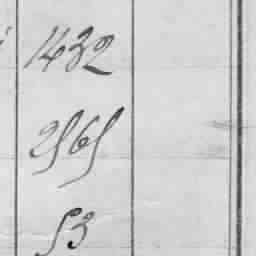 1432
2565
53